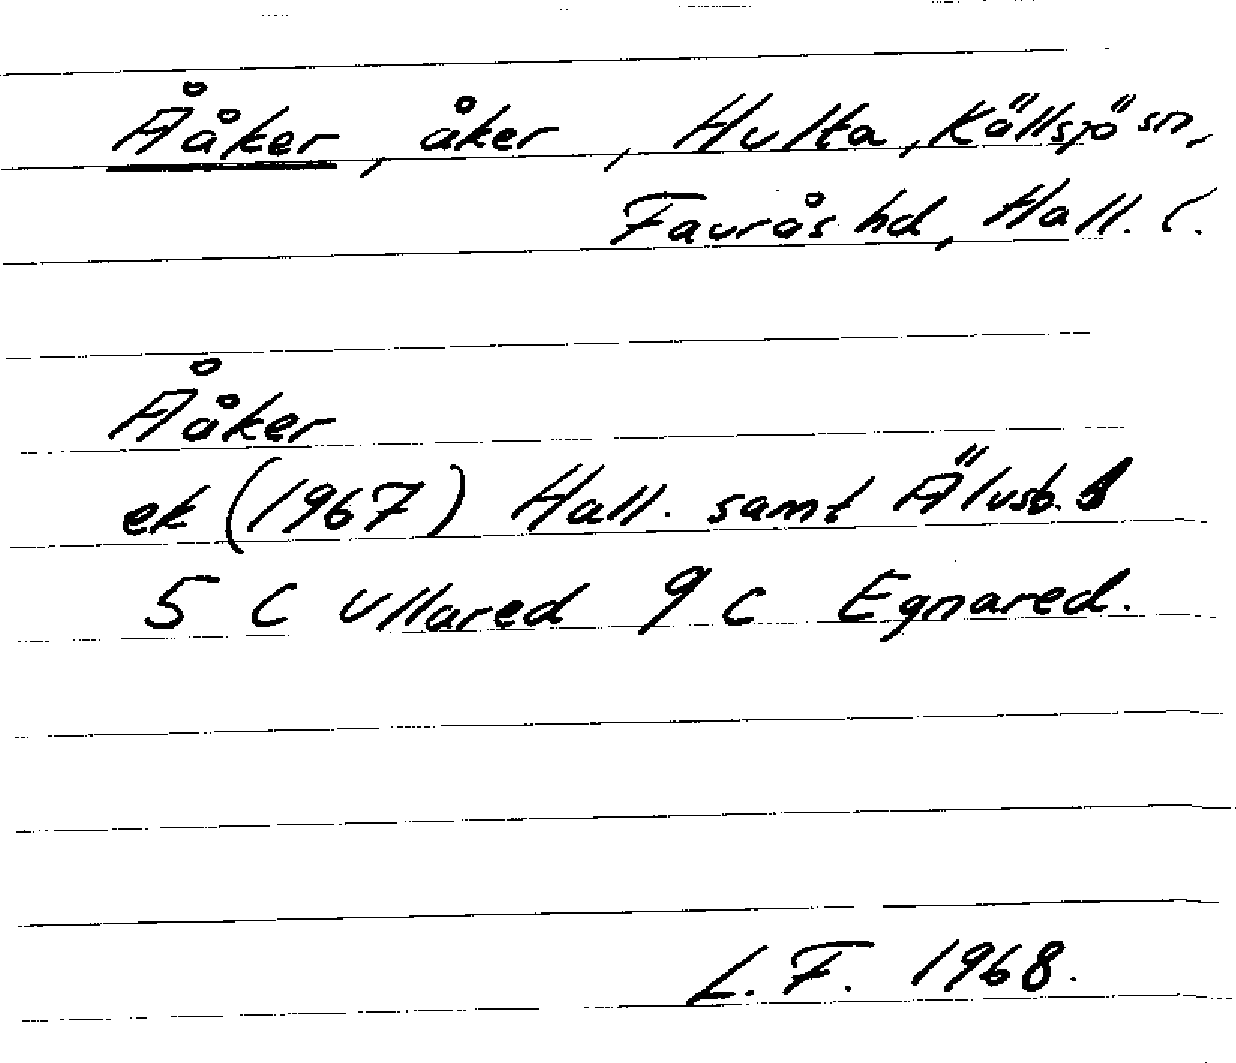 Ååker, åker, Hulta, Källsjö sn,
Faurås hd, Hall. l.
Ååker
ek (1967) Hall. samt Älvsb. l
5 C Ullared 9 c Egnared.
L. F. 1968.